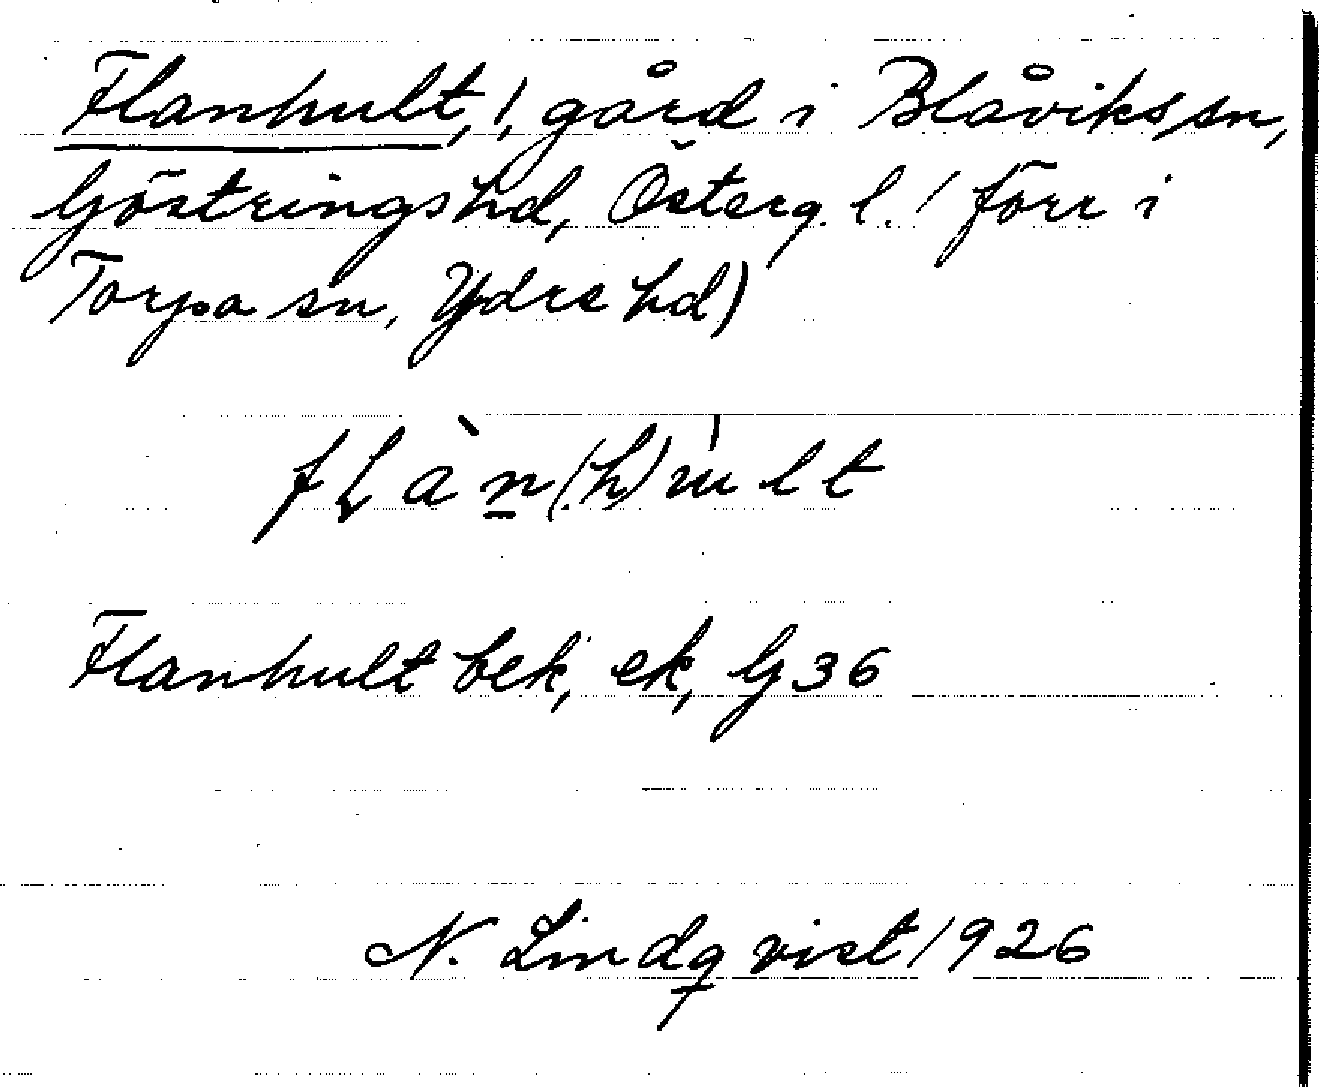 Flanhult, !, gård i Blåviks sn,
Göstrings hd, Österg. l. ( förr i
Torpa sn, Ydre hd)
fLàn(h)ult
Flanhult bek, ek, G 36
N. Lindqvist 1926